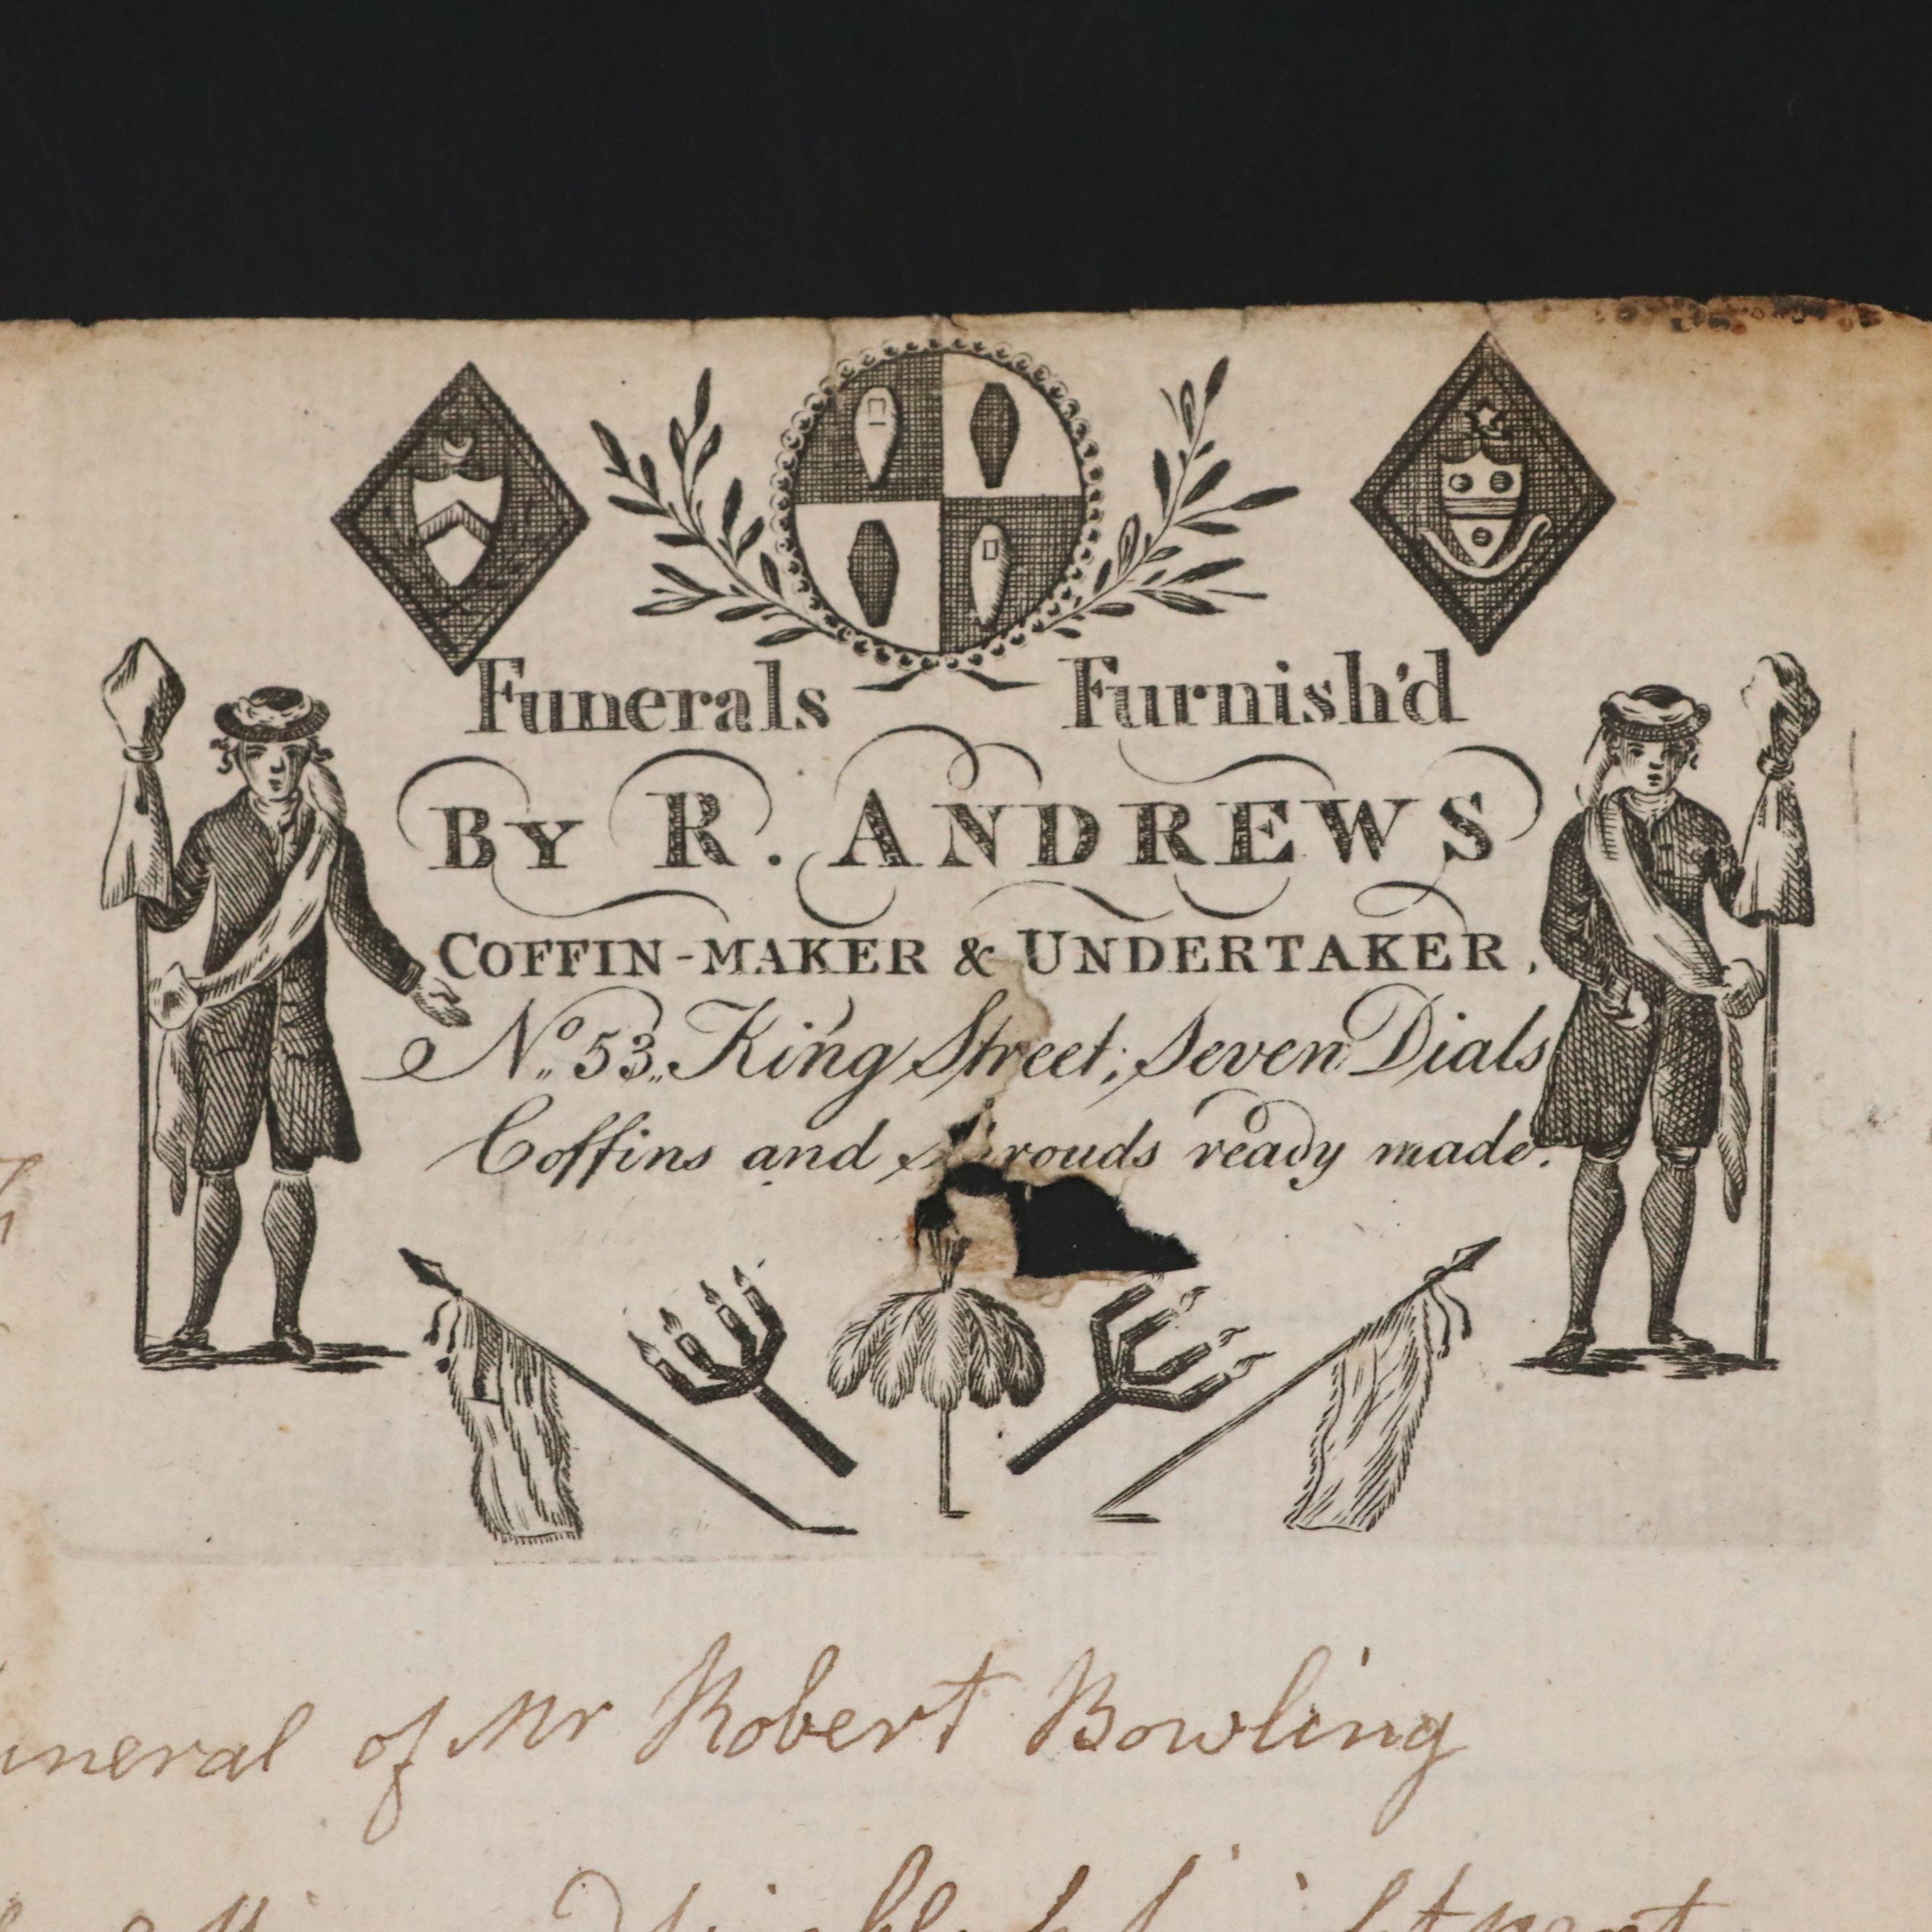 Funerals Furnish'd
BY R. ANDREWS
COFFIN-MAKER & UNDERTAKER,
No 53, King Street, Seven Dials
Coffins and ready made.
of Mr Robert Bowling